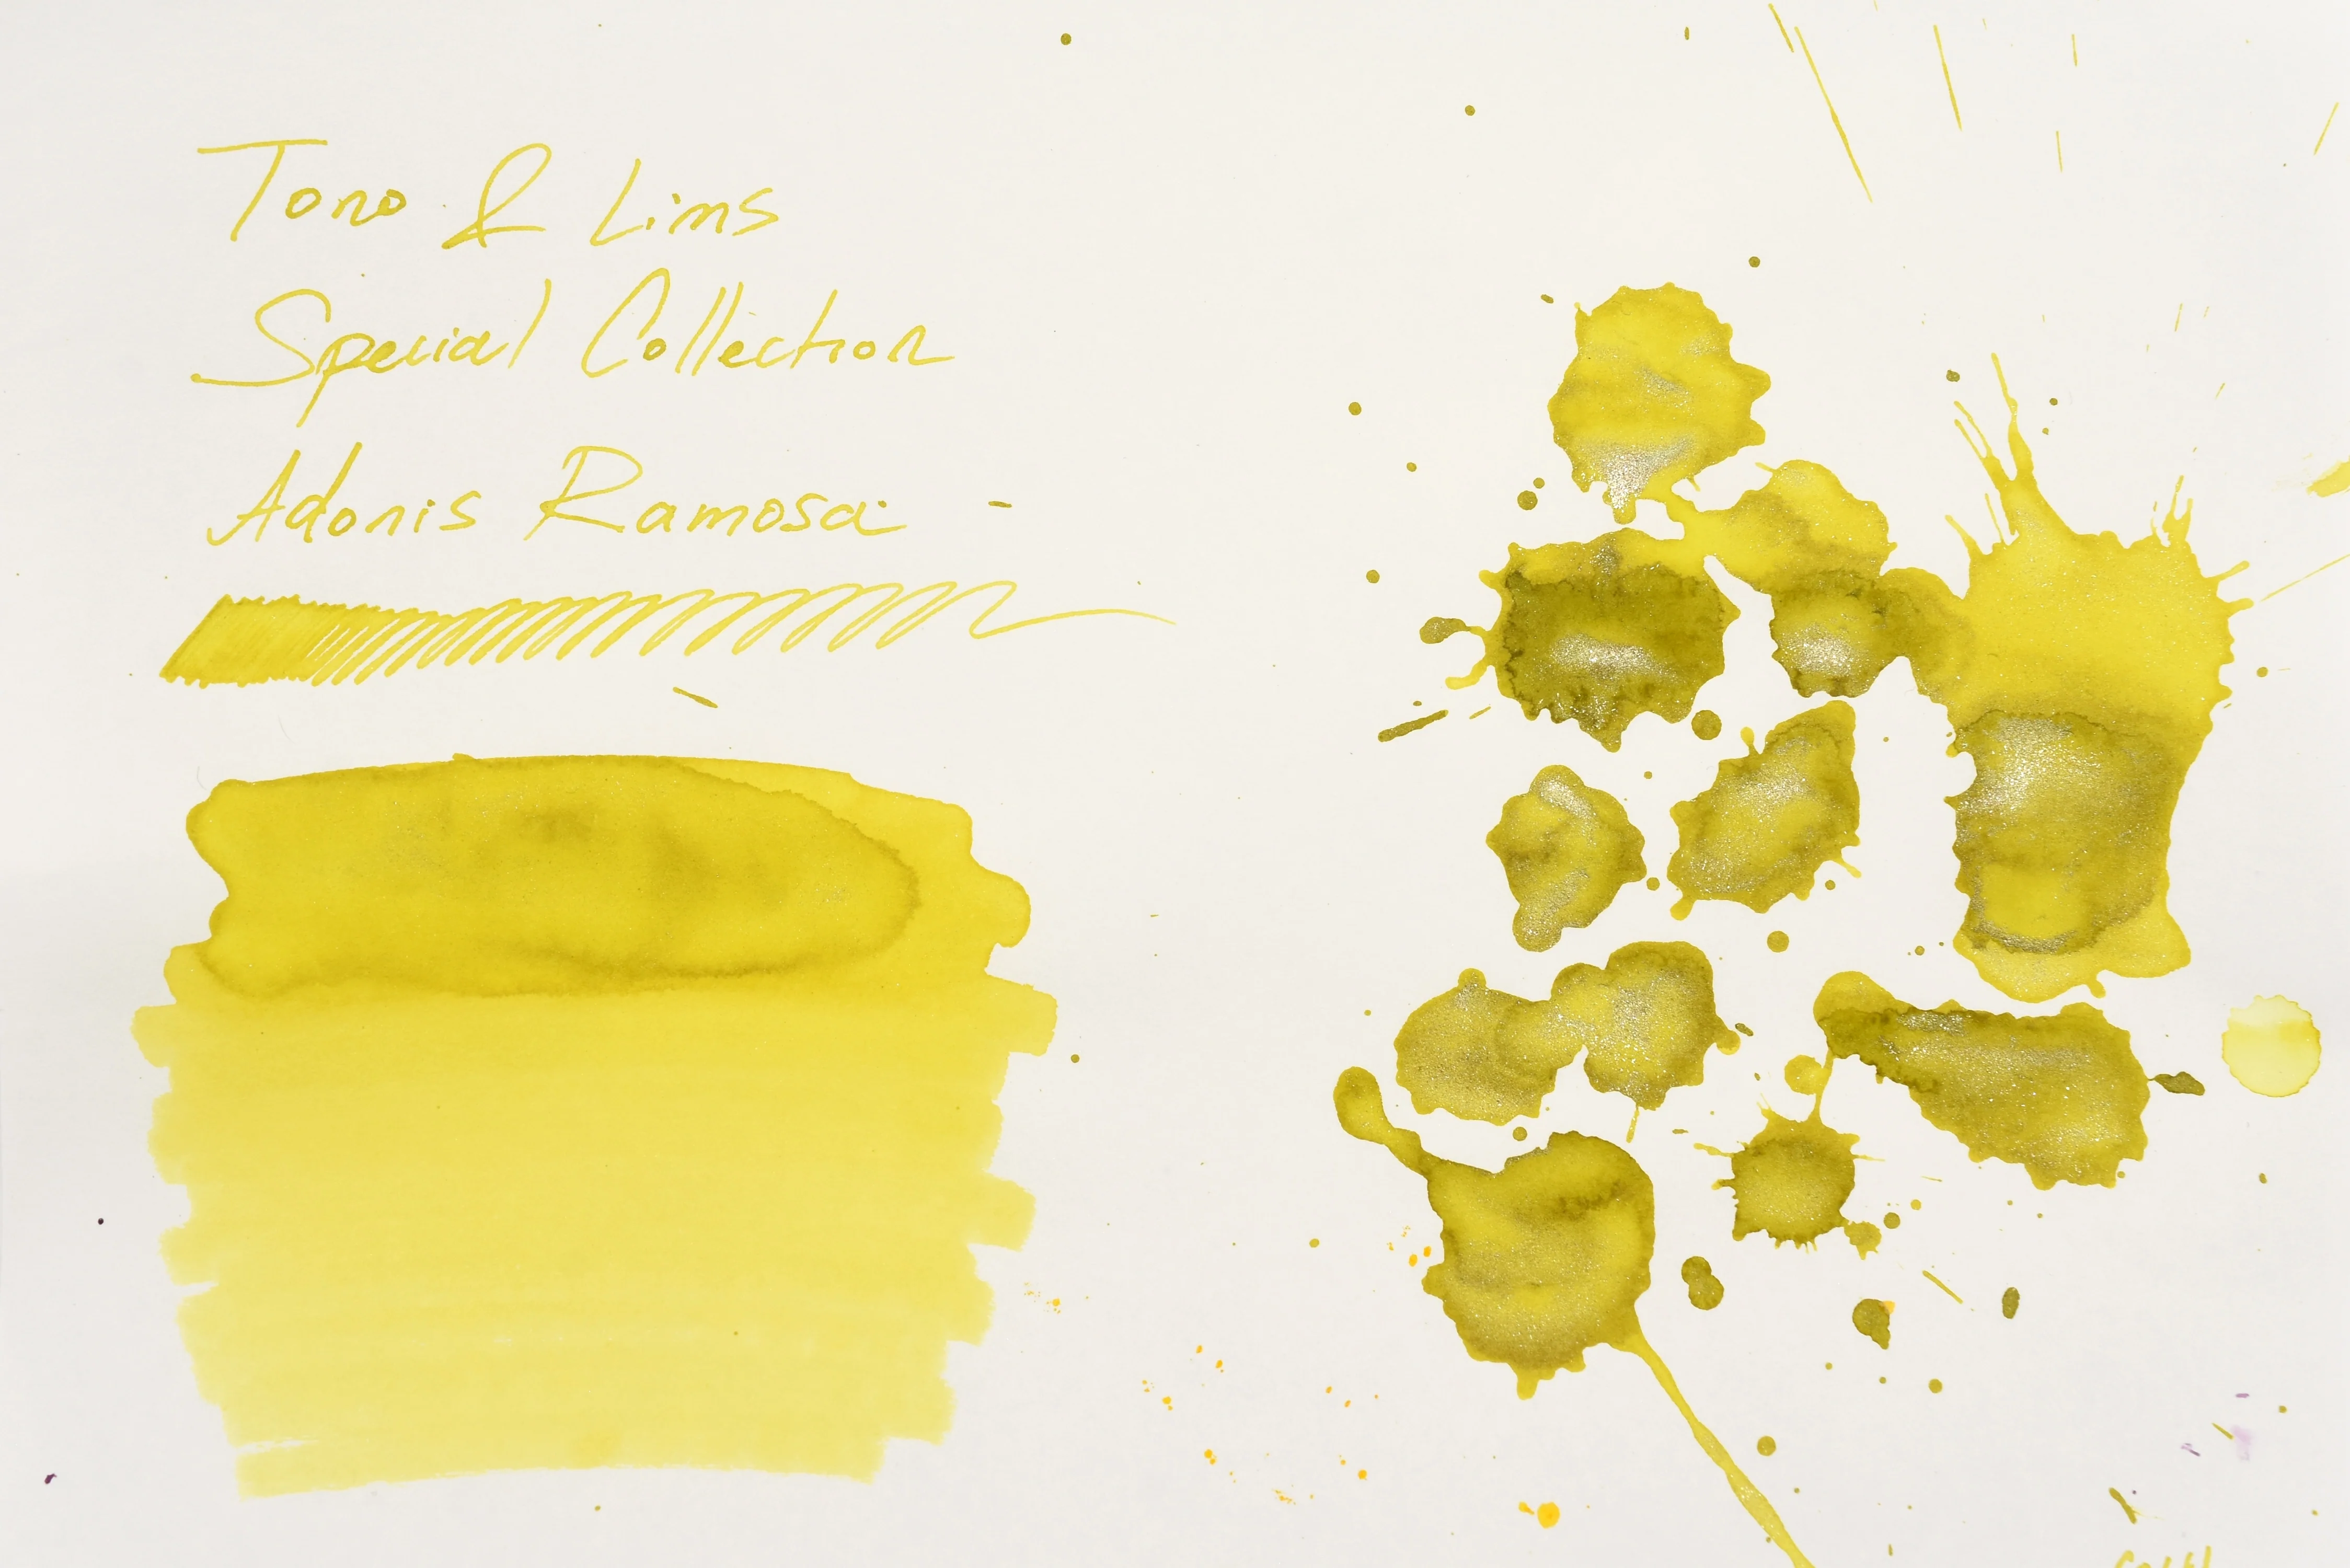 Tono & Lims
Special Collection
Adonis Ramosa